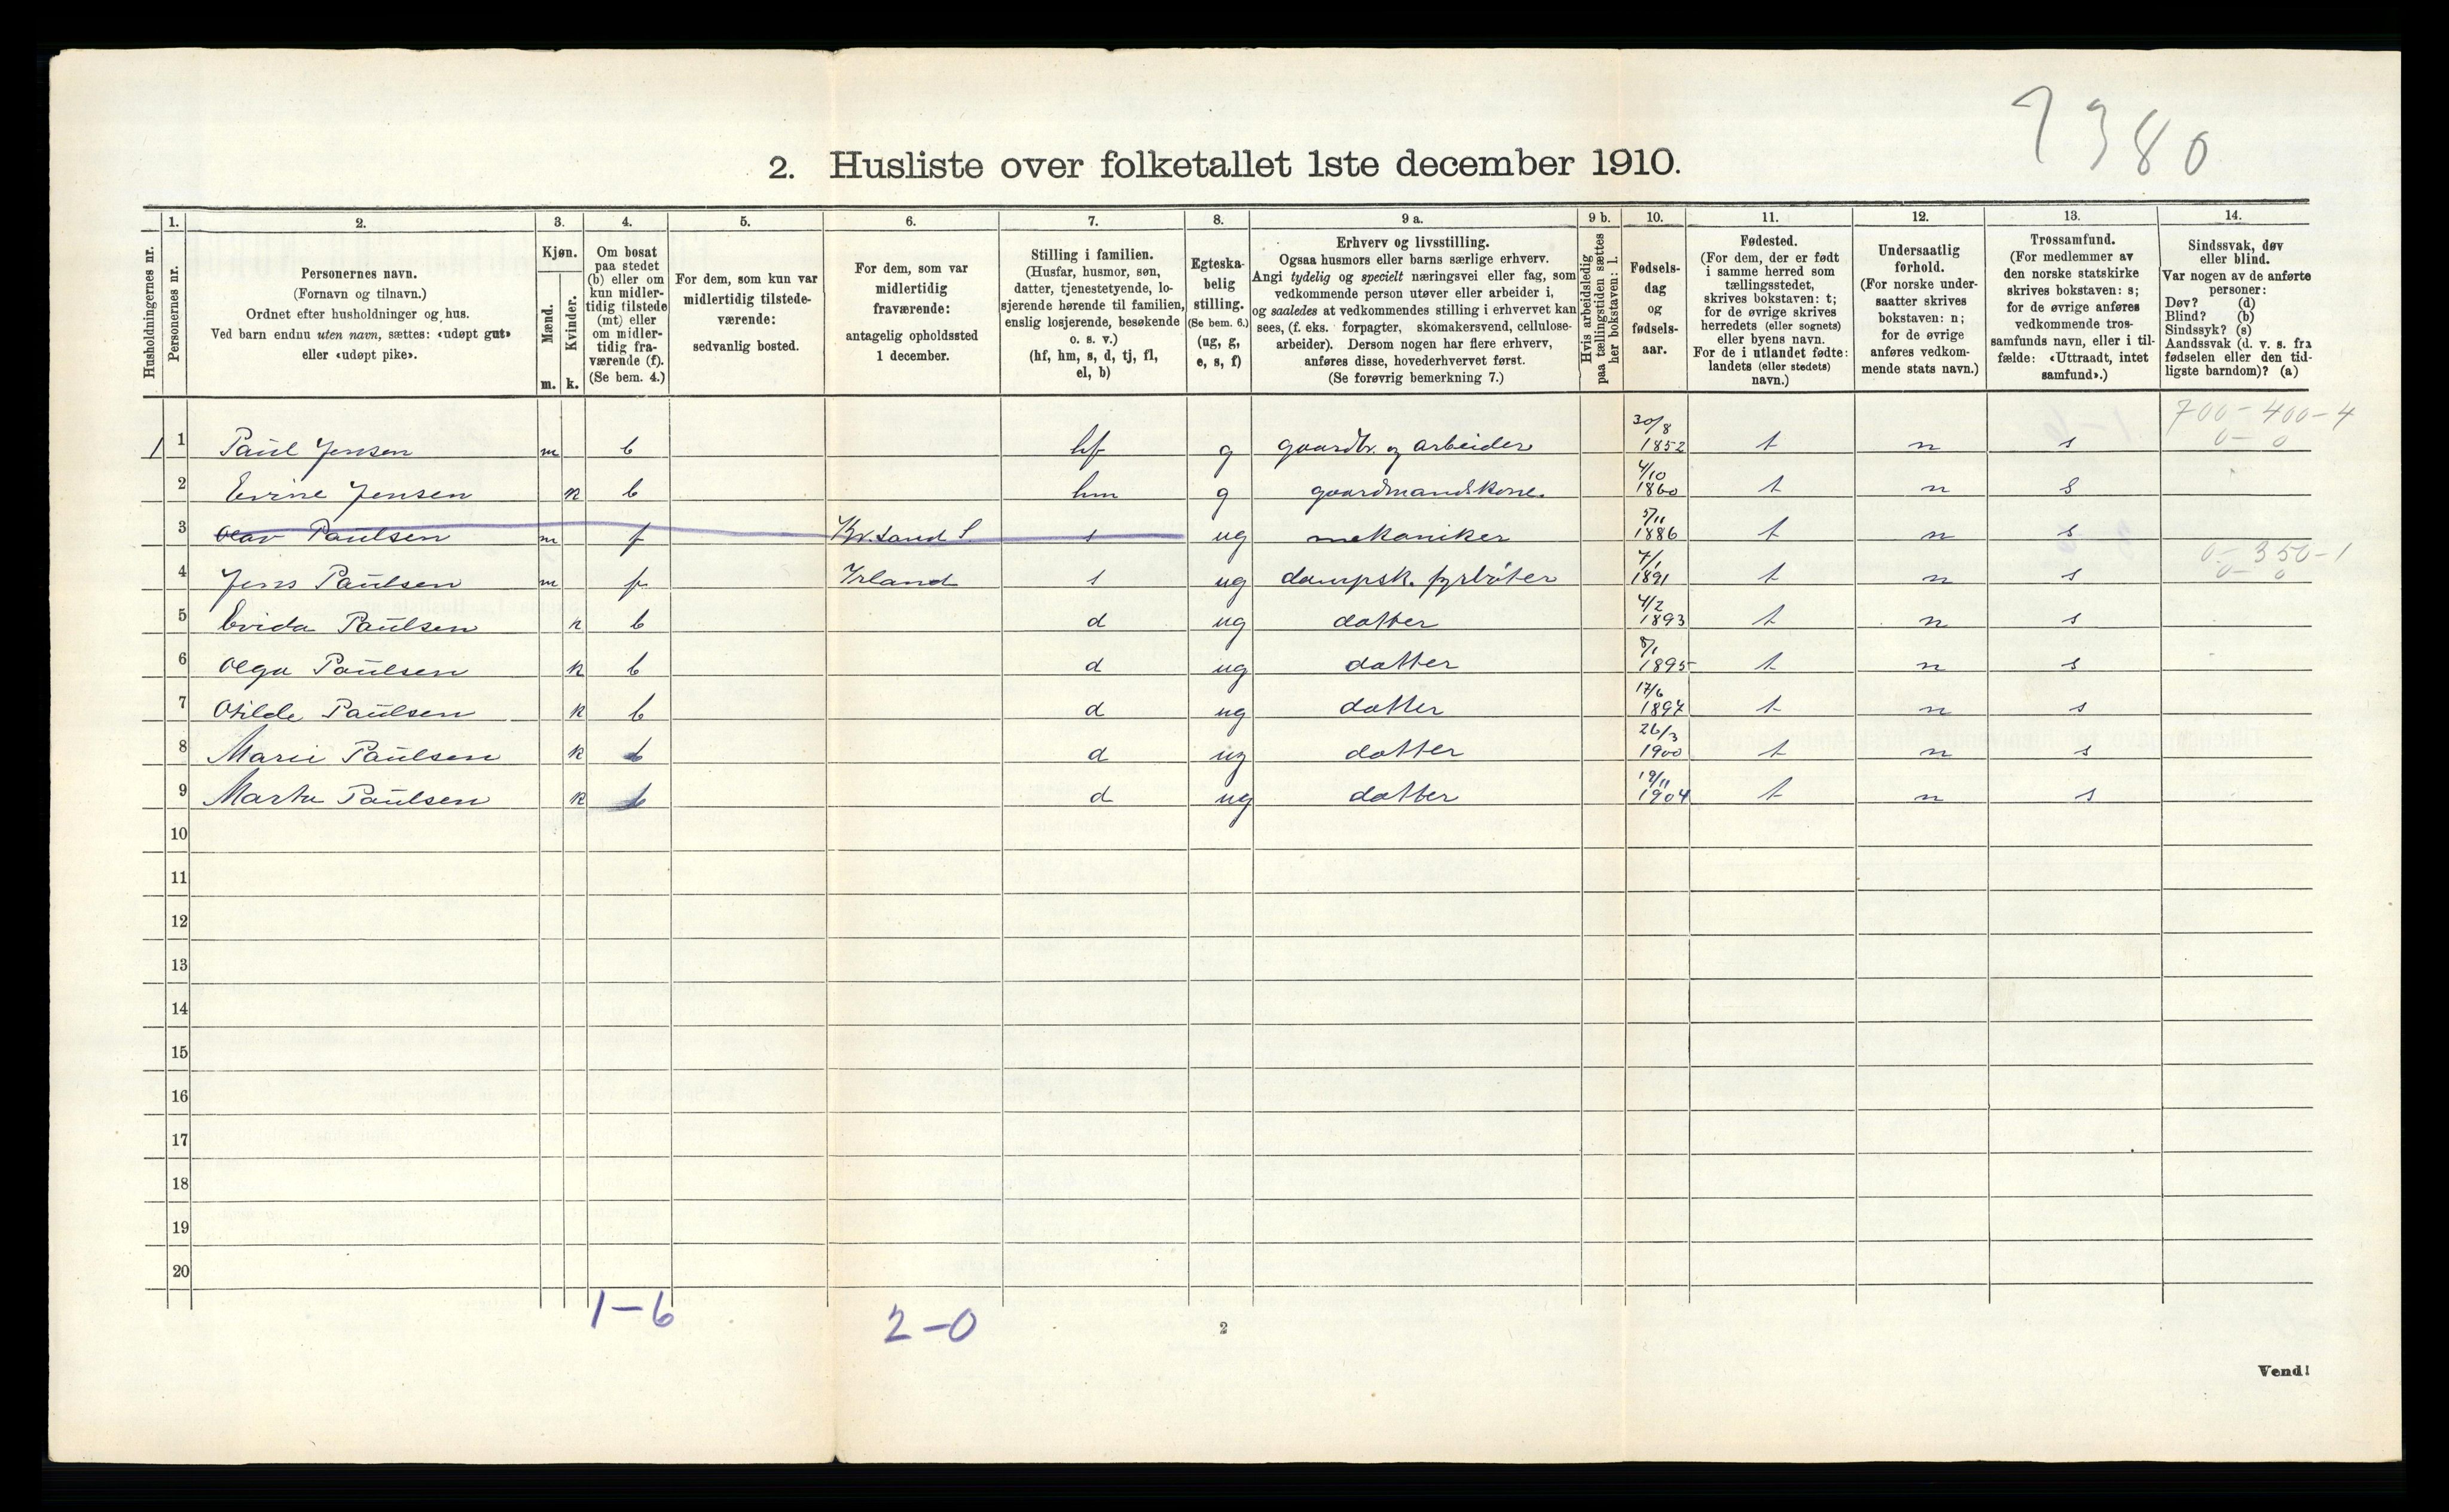 7380
2. Husliste over folketallet 1ste december 1910.
Husholdningernes nr.
1.
Personernes nr.
2.
Personernes navn.
(Fornavn og tilnavn.)
Ordnet efter husholdninger og hus.
Ved barn endnu uten navn, sættes: «udøpt gut»
eller «udøpt pike».
3.
Kjøn.
Mænd.
m.
Kvinder.
k.
4.
Om bosat
paa stedet
(b) eller om
kun midler-
tidig tilstede
(mt) eller
om midler-
tidig fra-
værende (f).
(Se bem. 4.)
5.
For dem, som kun var
midlertidig tilstede-
værende:
sedvanlig bosted.
6.
For dem, som var
midlertidig
fraværende:
antagelig opholdssted
1 december.
7.
Stilling i familien.
(Husfar, husmor, søn,
datter, tjenestetyende, lo-
sjerende hørende til familien,
enslig losjerende, besøkende
o. s. v.)
(hf, hm, s, d, tj, fl,
el, b)
8.
Egteska-
belig
stilling.
(Se bem. 6.)
(ug, g,
e, s, f)
9 a.
Erhverv og livsstilling.
Ogsaa husmors eller barns særlige erhverv.
Angi tydelig og specielt næringsvei eller fag, som
vedkommende person utøver eller arbeider i,
og saaledes at vedkommendes stilling i erhvervet kan
sees, (f. eks. forpagter, skomakersvend, cellulose-
arbeider). Dersom nogen har flere erhverv,
anføres disse, hovederhvervet først.
(Se forøvrig bemerkning 7.)
9 b.
Hvis arbeidsledig
paa tællingstiden sættes
her bokstaven: l.
10.
Fødsels-
dag
og
fødsels-
aar.
11.
Fødested.
(For dem, der er født
i samme herred som
tællingsstedet,
skrives bokstaven: t;
for de øvrige skrives
herredets (eller sognets)
eller byens navn.
For de i utlandet fødte:
landets (eller stedets)
navn.)
12.
Undersaatlig
forhold.
(For norske under-
saatter skrives
bokstaven: n;
for de øvrige
anføres vedkom-
mende stats navn.)
13.
Trossamfund.
(For medlemmer av
den norske statskirke
skrives bokstaven: s;
for de øvrige anføres
vedkommende tros-
samfunds navn, eller i til-
fælde: «Uttraadt, intet
samfund».)
14.
Sindssvak, døv
eller blind.
Var nogen av de anførte
personer:
Døv? (d)
Blind? (b)
Sindssyk? (s)
Aandssvak (d. v. s. fra
fødselen eller den tid-
ligste barndom)? (a)
700 - 400 - 4
0 - 0
1 1 Paul Jensen m b hf g gaardbr. og arbeider 30/8 1852 t n s
2 Evine Jensen k b hm g gaardmandskone. 4/10 1860 t n s
3 Olav Paulsen m f Kr.sand S. s ug mekaniker 5/11 1886 t n s
0 - 350 - 1
0 - 0
4 Jens Paulsen m f Irland s ug dampsk. fyrbøter 7/1 1891 t n s
5 Evida Paulsen k b d ug datter 4/2 1893 t n s
6 Olga Paulsen k b d ug datter 8/1 1895 t n s
7 Otilde Paulsen k b d ug datter 17/6 1897 t n s
8 Marie Paulsen k b d ug datter 26/3 1900 t n s
9 Marta Paulsen k b d ug datter 19/11 1904 t n s
10
11
12
13
14
15
16
17
18
19
20
1-6
2-0
2
Vend!